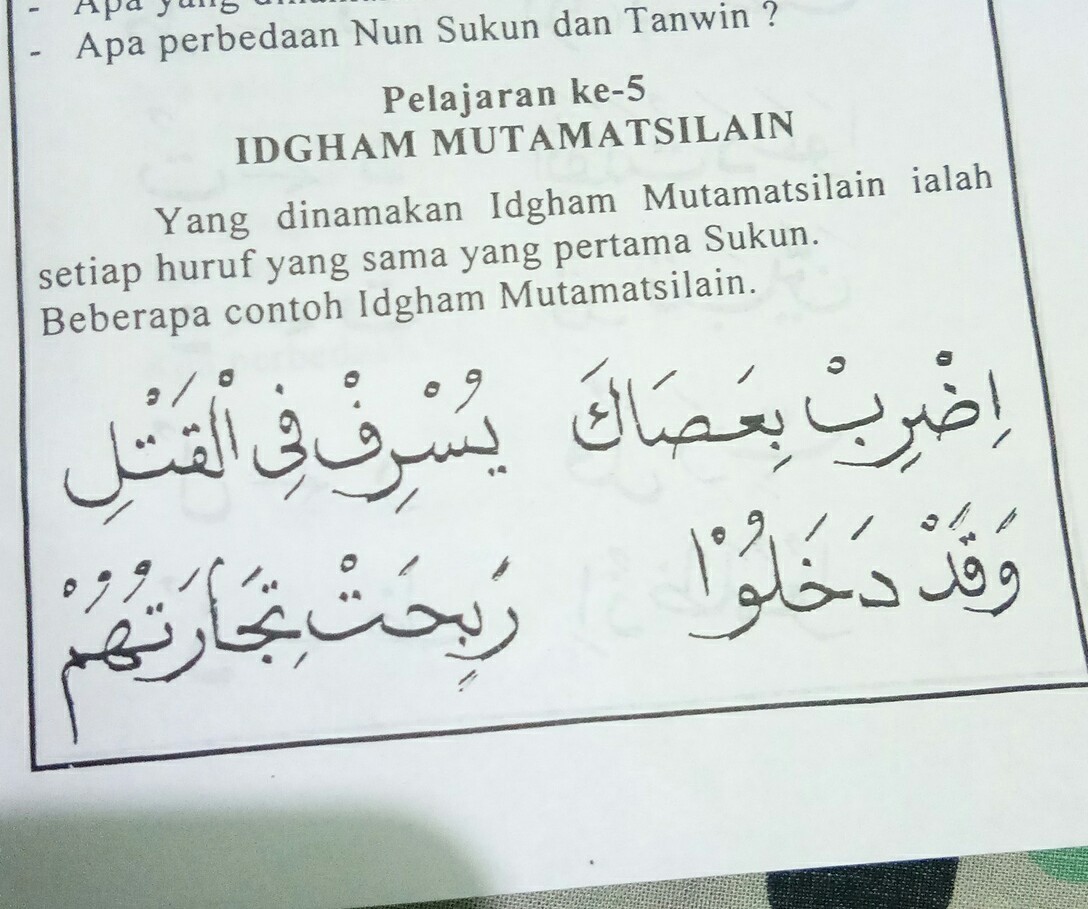 - Apa yang
- Apa perbedaan Nun Sukun dan Tanwin ?
Pelajaran ke-5
IDGHAM MUTAMATSILAIN
Yang dinamakan Idgham Mutamatsilain ialah
setiap huruf yang sama yang pertama Sukun.
Beberapa contoh Idgham Mutamatsilain.
اِضْرِبْ بِعَصَاكَ يُسْرِفْ فِى الْقَتْلِ
وَقَدْ دَخَلُوْا رَبِحَتْ تِجَارَتُهُمْ